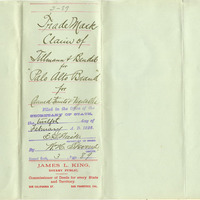 2-59
Trade Mark
Claim of
Tillmann & Bendel
for
Palo Alto Brand
for
Canned Fruits & Vegetables
Filed in the Office of the
SECRETARY OF STATE,
the twelfth day of
February A.D. 188
By
JAMES L. KING,
NOTARY PUBLIC
Commissioner of Deeds for every State
and Territory.